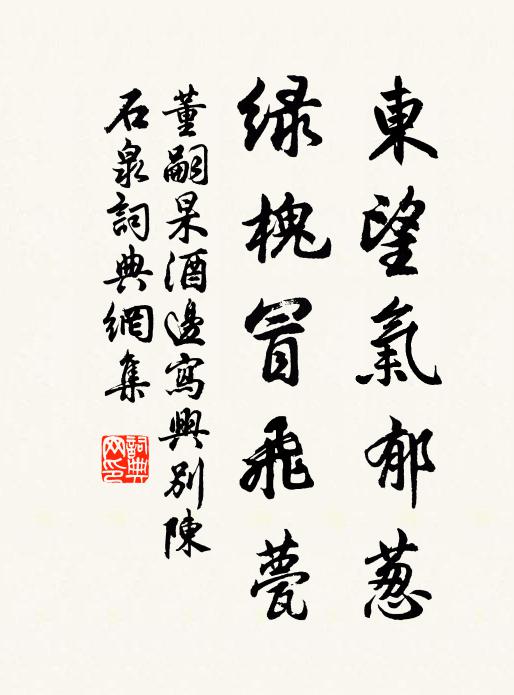 東望氣郁葱
緑槐冒飛甍
董嗣杲酒邊寫興別陳
石泉詞典網集
詞典网印